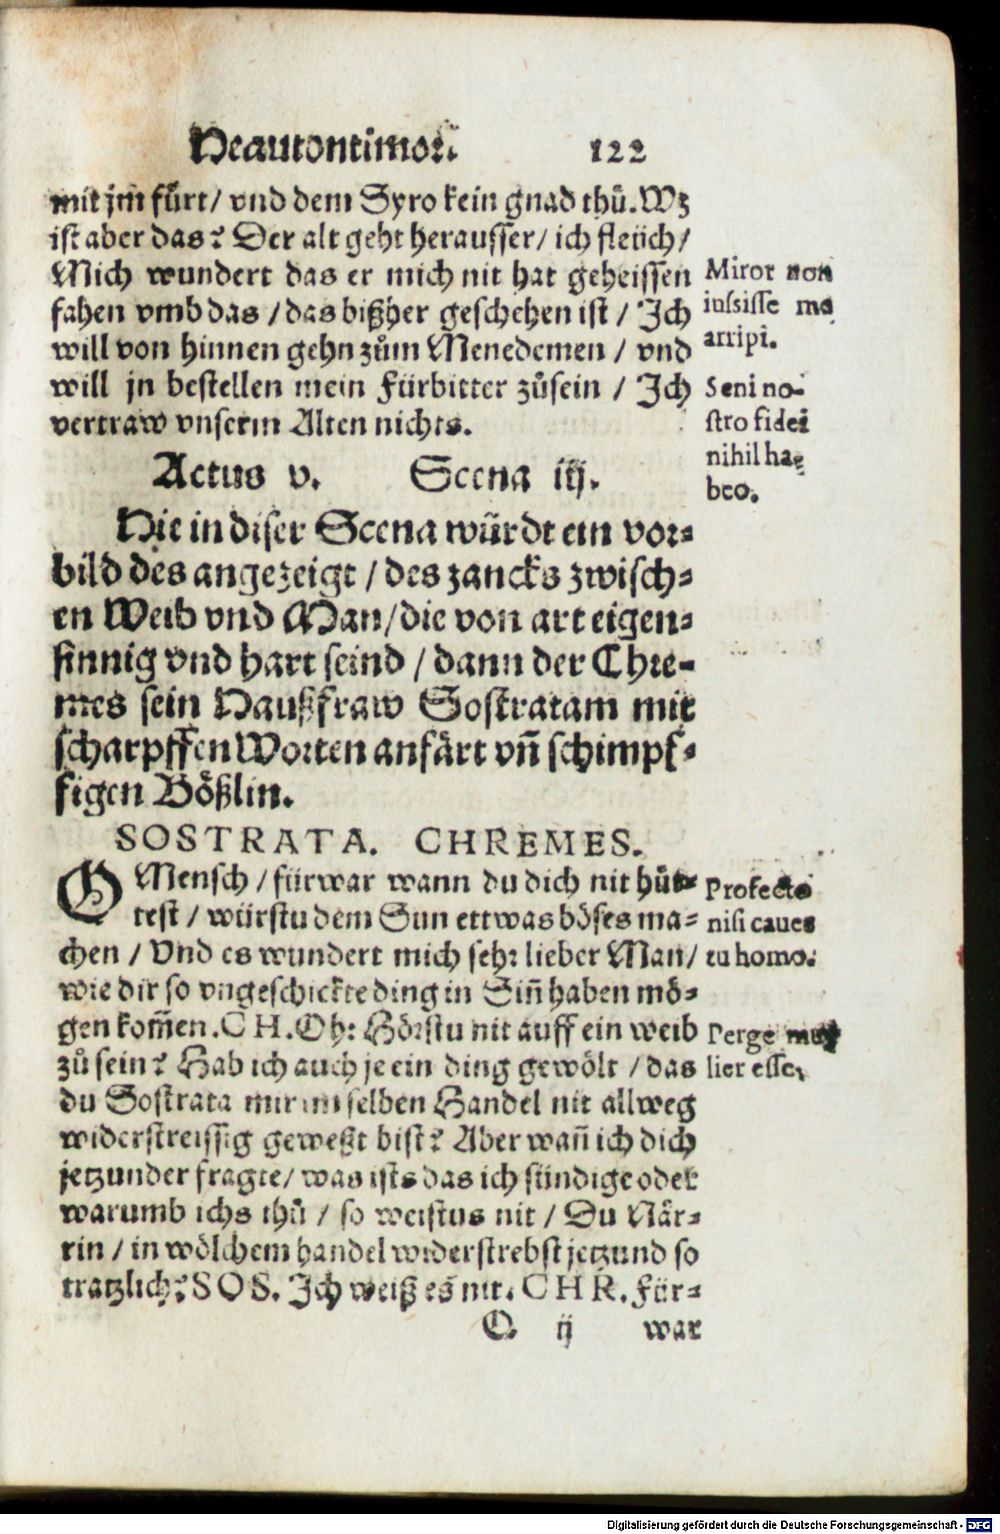 Heautontimor. 122
mit jm fürt/ vnd dem Syro kein gnad thů. Wz
ist aber das? Der alt geht herausser/ ich fleüch/
Mich wundert das er mich nit hat geheissen
fahen vmb das / das bißher geschehen ist / Ich
will von hinnen gehn zům Menedemen / vnd
will jn bestellen mein Fürbitter zůsein / Ich
vertraw vnserm Alten nichts.
Miror non
iussisse me
arripi.
Seni no-
stro fidei
nihil ha-
beo.
Actus v. Scena iij.
Hie in diser Scena würdt ein vor-
bild des angezeigt / des zancks zwisch-
en Weib vnd Man/die von art eigen-
sinnig vnd hart seind / dann der Chre-
mes sein Haußfraw Sostratam mit
scharpffen Worten anfärt vñ schimpf-
figen Bößlin.
SOSTRATA. CHREMES.
O Mensch / fürwar wann du dich nit hüt-
test / würstu dem Sun ettwas böses ma-
chen / Vnd es wundert mich sehr lieber Man/
wie dir so vngeschickte ding in Siñ haben mö-
gen kom̃en. CH. Oh: Hörstu nit auff ein weib
zů sein? Hab ich auch je ein ding gewölt / das
du Sostrata mir im selben Handel nit allweg
widerstreissig geweßt bist? Aber wañ ich dich
jetzunder fragte/ was ists das ich sündige oder
warumb ichs thů / so weistus nit / Du När-
rin / in wölchem handel widerstrebst jetzund so
tratzlich? SOS. Ich weiß es nit. CHR. Für-
Profecto
nisi caues
tu homo.
Perge mu-
lier esse.
Q ij war
Digitalisierung gefördert durch die Deutsche Forschungsgemeinschaft - DFG